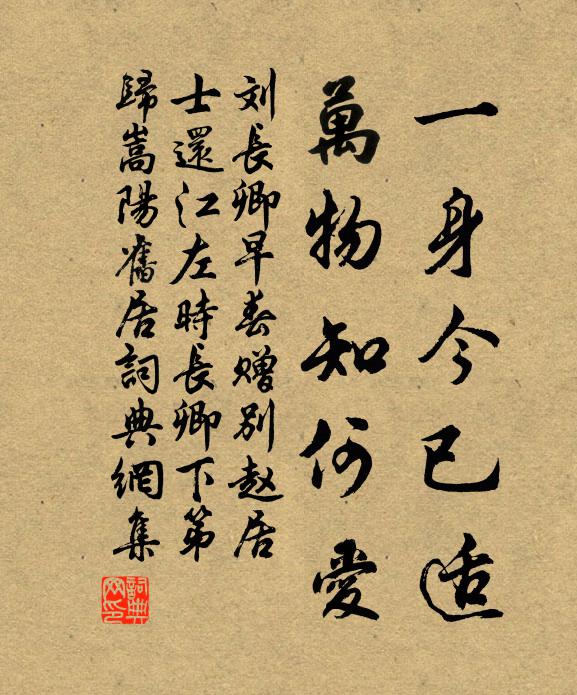 一身今已适
萬物知何愛
刘長卿早春赠別赵居
士還江左時長卿下第
歸嵩陽舊居詞典網集
詞典网印